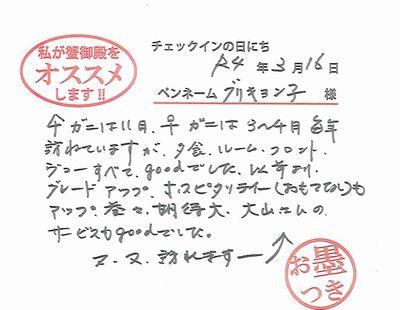 私が蟹御殿を
オススメ
します!!
チェックインの日にち
R4年3月16日
ペンネーム ブリキョン子 様
今ガニは11月、平ガニは3〜4月毎年
訪れていますが、夕食、ルーム、フロント、
ジョーすべて、goodでした。以前より、
グレードアップ、ホスピタリティー(おもてなし)も
アップ、益々、期待大、大山さんの
サービスもgoodでした。
又、又、訪れます
お墨
つき